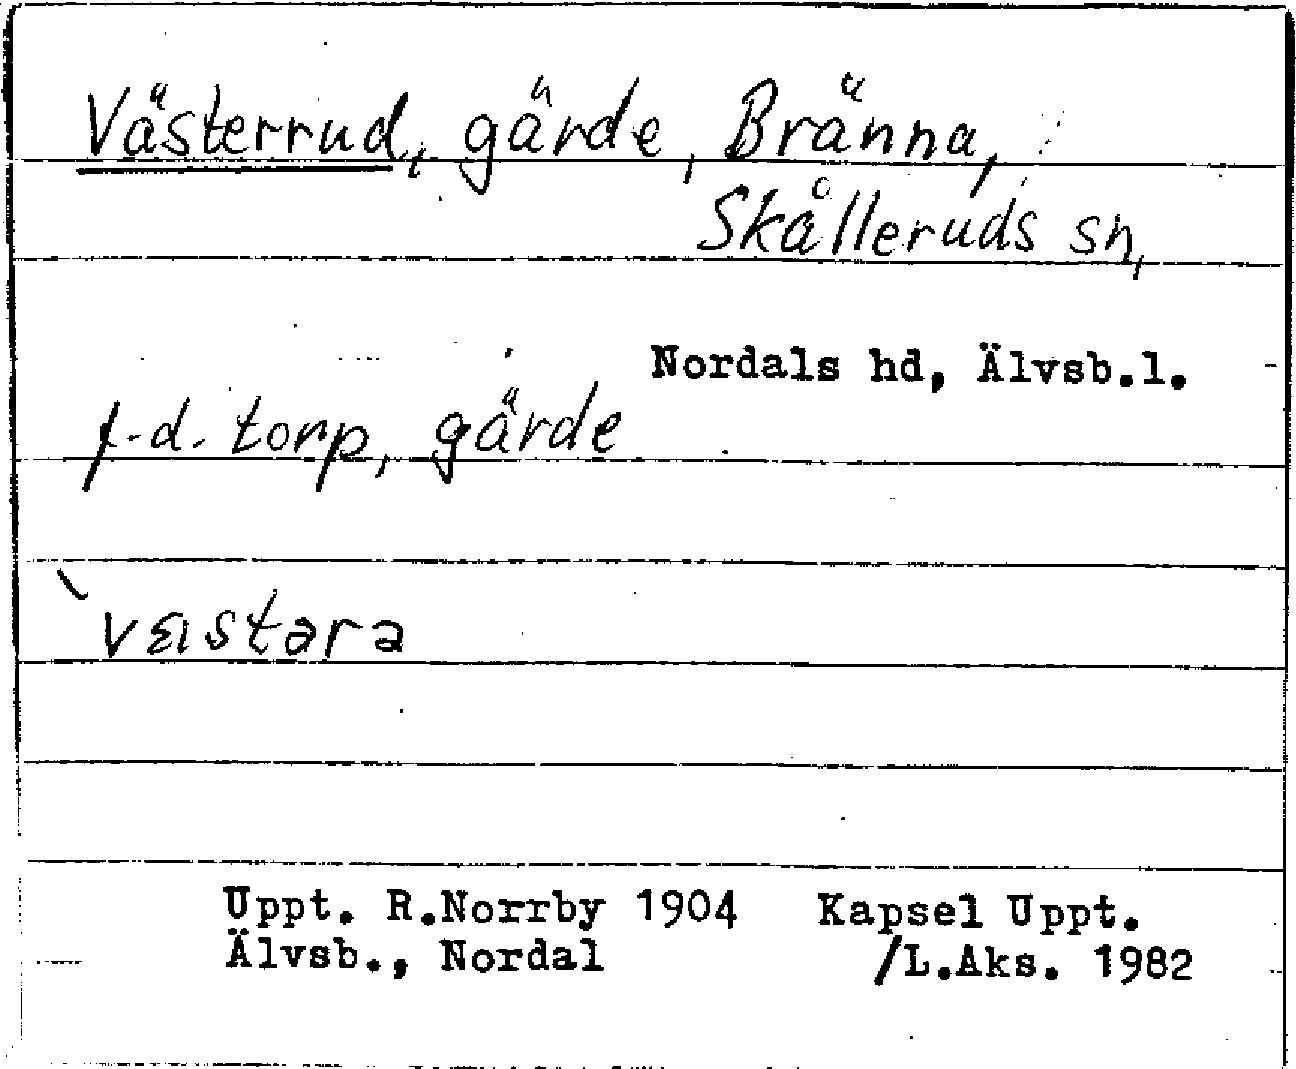 Västerrud, gärde, Bränna,
Skålleruds sn,
Nordals hd, Älvsb.l.
f.d. torp, gärde
`væstəra
Uppt. R.Norrby 1904 Kapsel Uppt.
Älvsb., Nordal /L.Aks. 1982